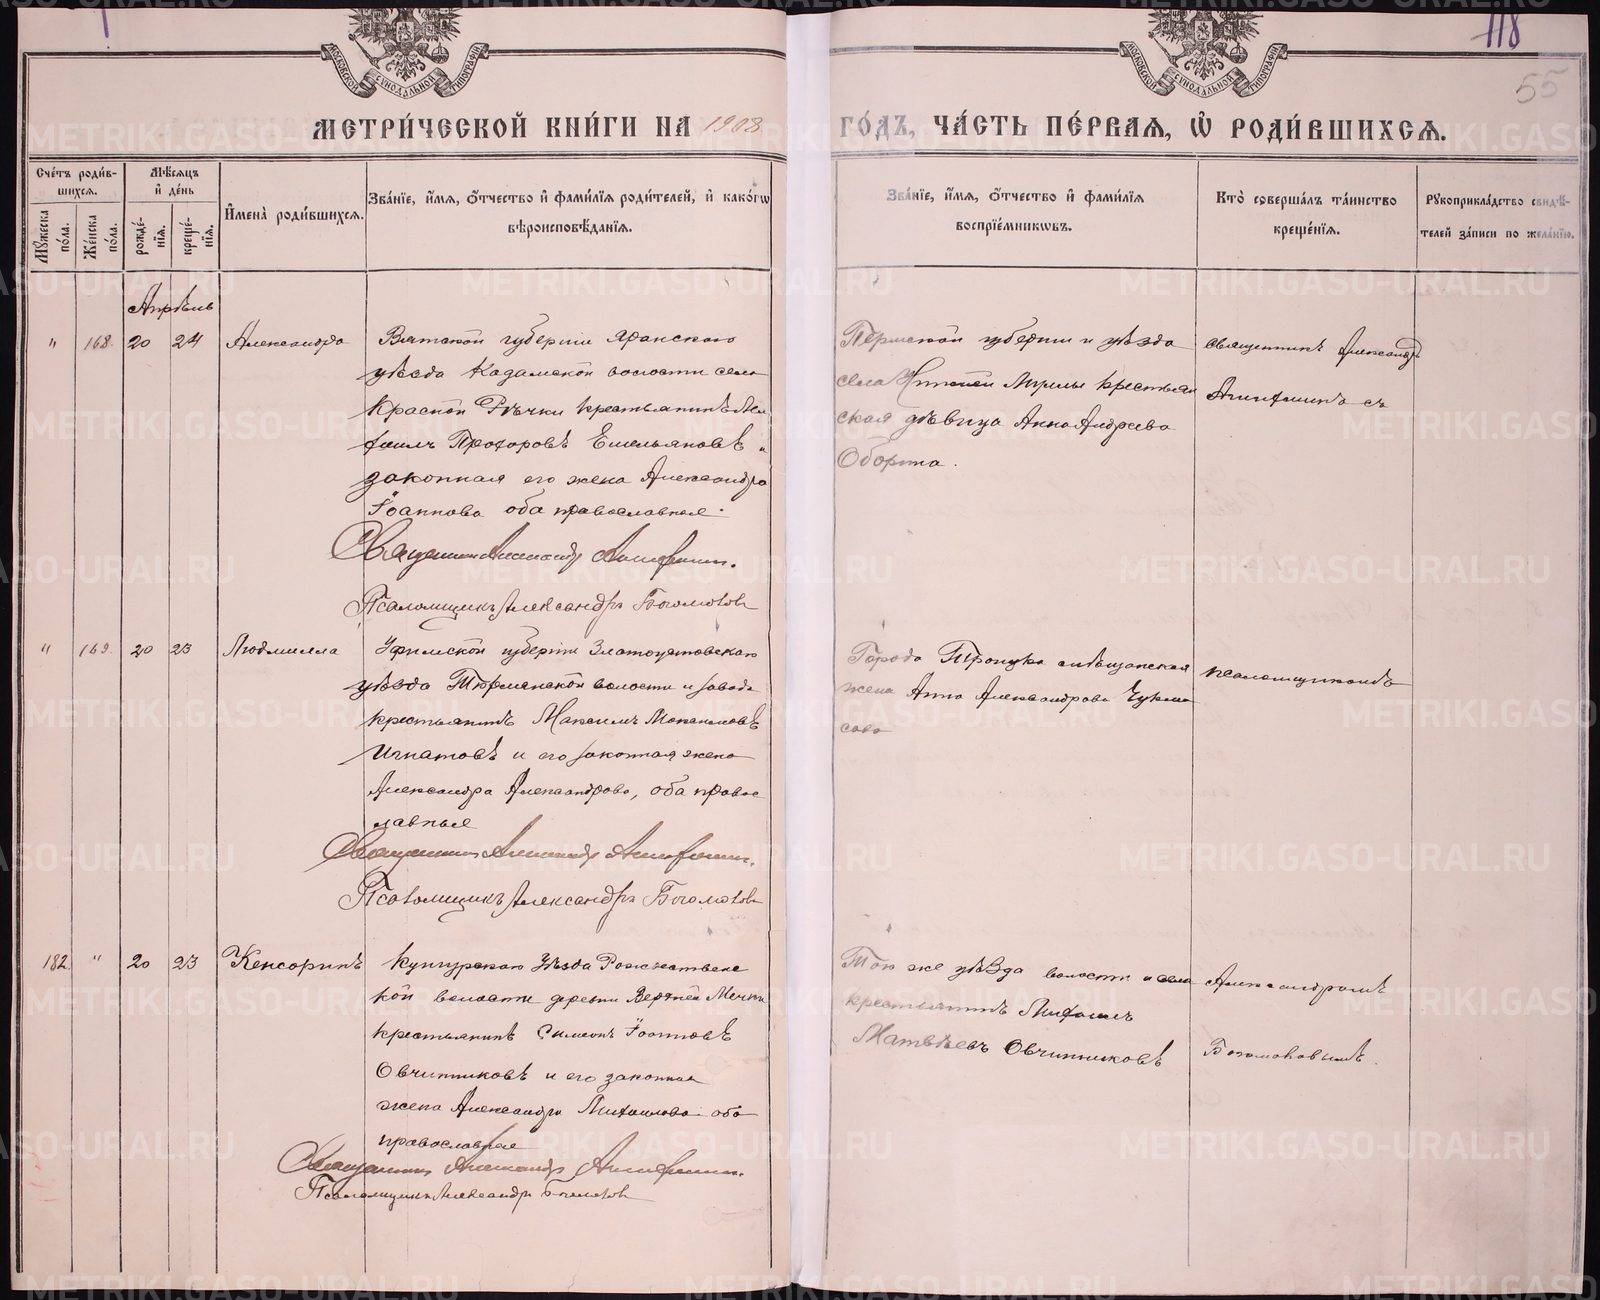 118
55
МОСКОВСКОЙ СѴНОДАЛЬНОЙ ТИПОГРАФІИ
МОСКОВСКОЙ СѴНОДАЛЬНОЙ ТИПОГРАФІИ
МЕТРИ́ЧЕСКОЙ КНИ́ГИ НА 1908 ГО́ДЪ, ЧА́СТЬ ПЕ́РВАѦ, Ѡ҆ РОДИ́ВШИХСѦ.
Сче́тъ роди́вшихсѧ.
Мꙋ́жеска по́ла.
Же́нска по́ла.
Мѣ́сѧцъ и҆ де́нь
рожде́нїѧ.
креще́нїѧ.
И҆мена̀ роди́вшихсѧ.
Зва́нїе, и҆́мѧ, ѻ҆́тчество и҆ фами́лїѧ роди́телей, и҆ како́гѡ вѣроисповѣ́данїѧ.
Зва́нїе, и҆́мѧ, ѻ҆́тчество и҆ фами́лїѧ воспрїе́мникѡвъ.
Кто̀ соверша́лъ та́инство креще́нїѧ.
Рꙋкоприкла́дство свидѣ́телей за́писи по жела́нїю.
Апрѣль
" 168. 20 24 Александра
Вятской губерніи Яранскаго
уѣзда Кадамской волости села
Красной Рѣчки крестьянинъ Ми
хаилъ Прохоровъ Емельяновъ и
законная его жена Александра
Іоаннова оба православные.
Священникъ Александръ Анифинъ.
Псаломщикъ Александръ Богомоловъ
Пермской губерніи и уѣзда
села Нижней Муллы крестьян
ская дѣвица Анна Андреева
Оборина.
Священникъ Александръ
Анифинъ съ
" 169. 20 23 Людмилла
Уфимской губерніи Златоустовскаго
уѣзда Тюрлянской волости и завода
крестьянинъ Максимъ Максимовъ
Игнатовъ и его законная жена
Александра Александрова, оба право
славные
Священникъ Александръ Анифинъ.
Псаломщикъ Александръ Богомоловъ
Города Троицка мѣщанская
жена Анна Александрова
псаломщикомъ
182. " 20 23 Кенсоринъ
Кунгурскаго Уѣзда Рождественс
кой волости деревни Верхней Мечки
крестьянинъ Симеонъ Іоанновъ
Овчинниковъ и его законная
жена Александра Михаилова оба
православные
Священникъ Александръ Анифинъ.
Псаломщикъ Александръ Богомоловъ
Того же уѣзда волости и села
крестьянинъ Михаилъ
Матвѣевъ Овчинниковъ
Александромъ
Богомоловымъ.
METRIKI.GASO-URAL.RU